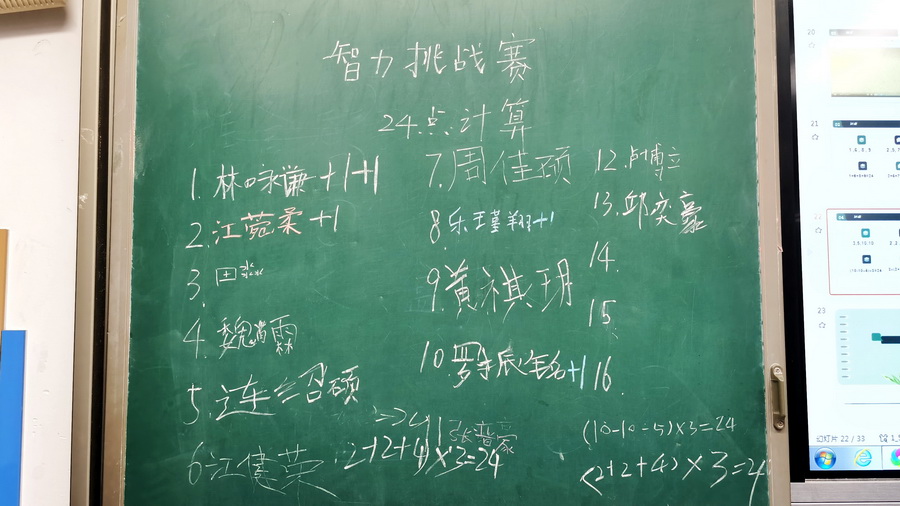 智力挑战赛
24点计算
1.林咏谦+1+1
2.江菀柔+1
3.田淼
4.魏霖
5.连绍硕
6江健荣
7.周佳硕
8.乐瑾翔+1
9.黄祺玥
10.罗辰铭+1
11张晋豪
12.卢博立
13.邱奕豪
14.
15
16.
=24
(2+2+4)×3=24
(2+2+4)×3=24
20
21
22
23
幻灯片 22 / 33